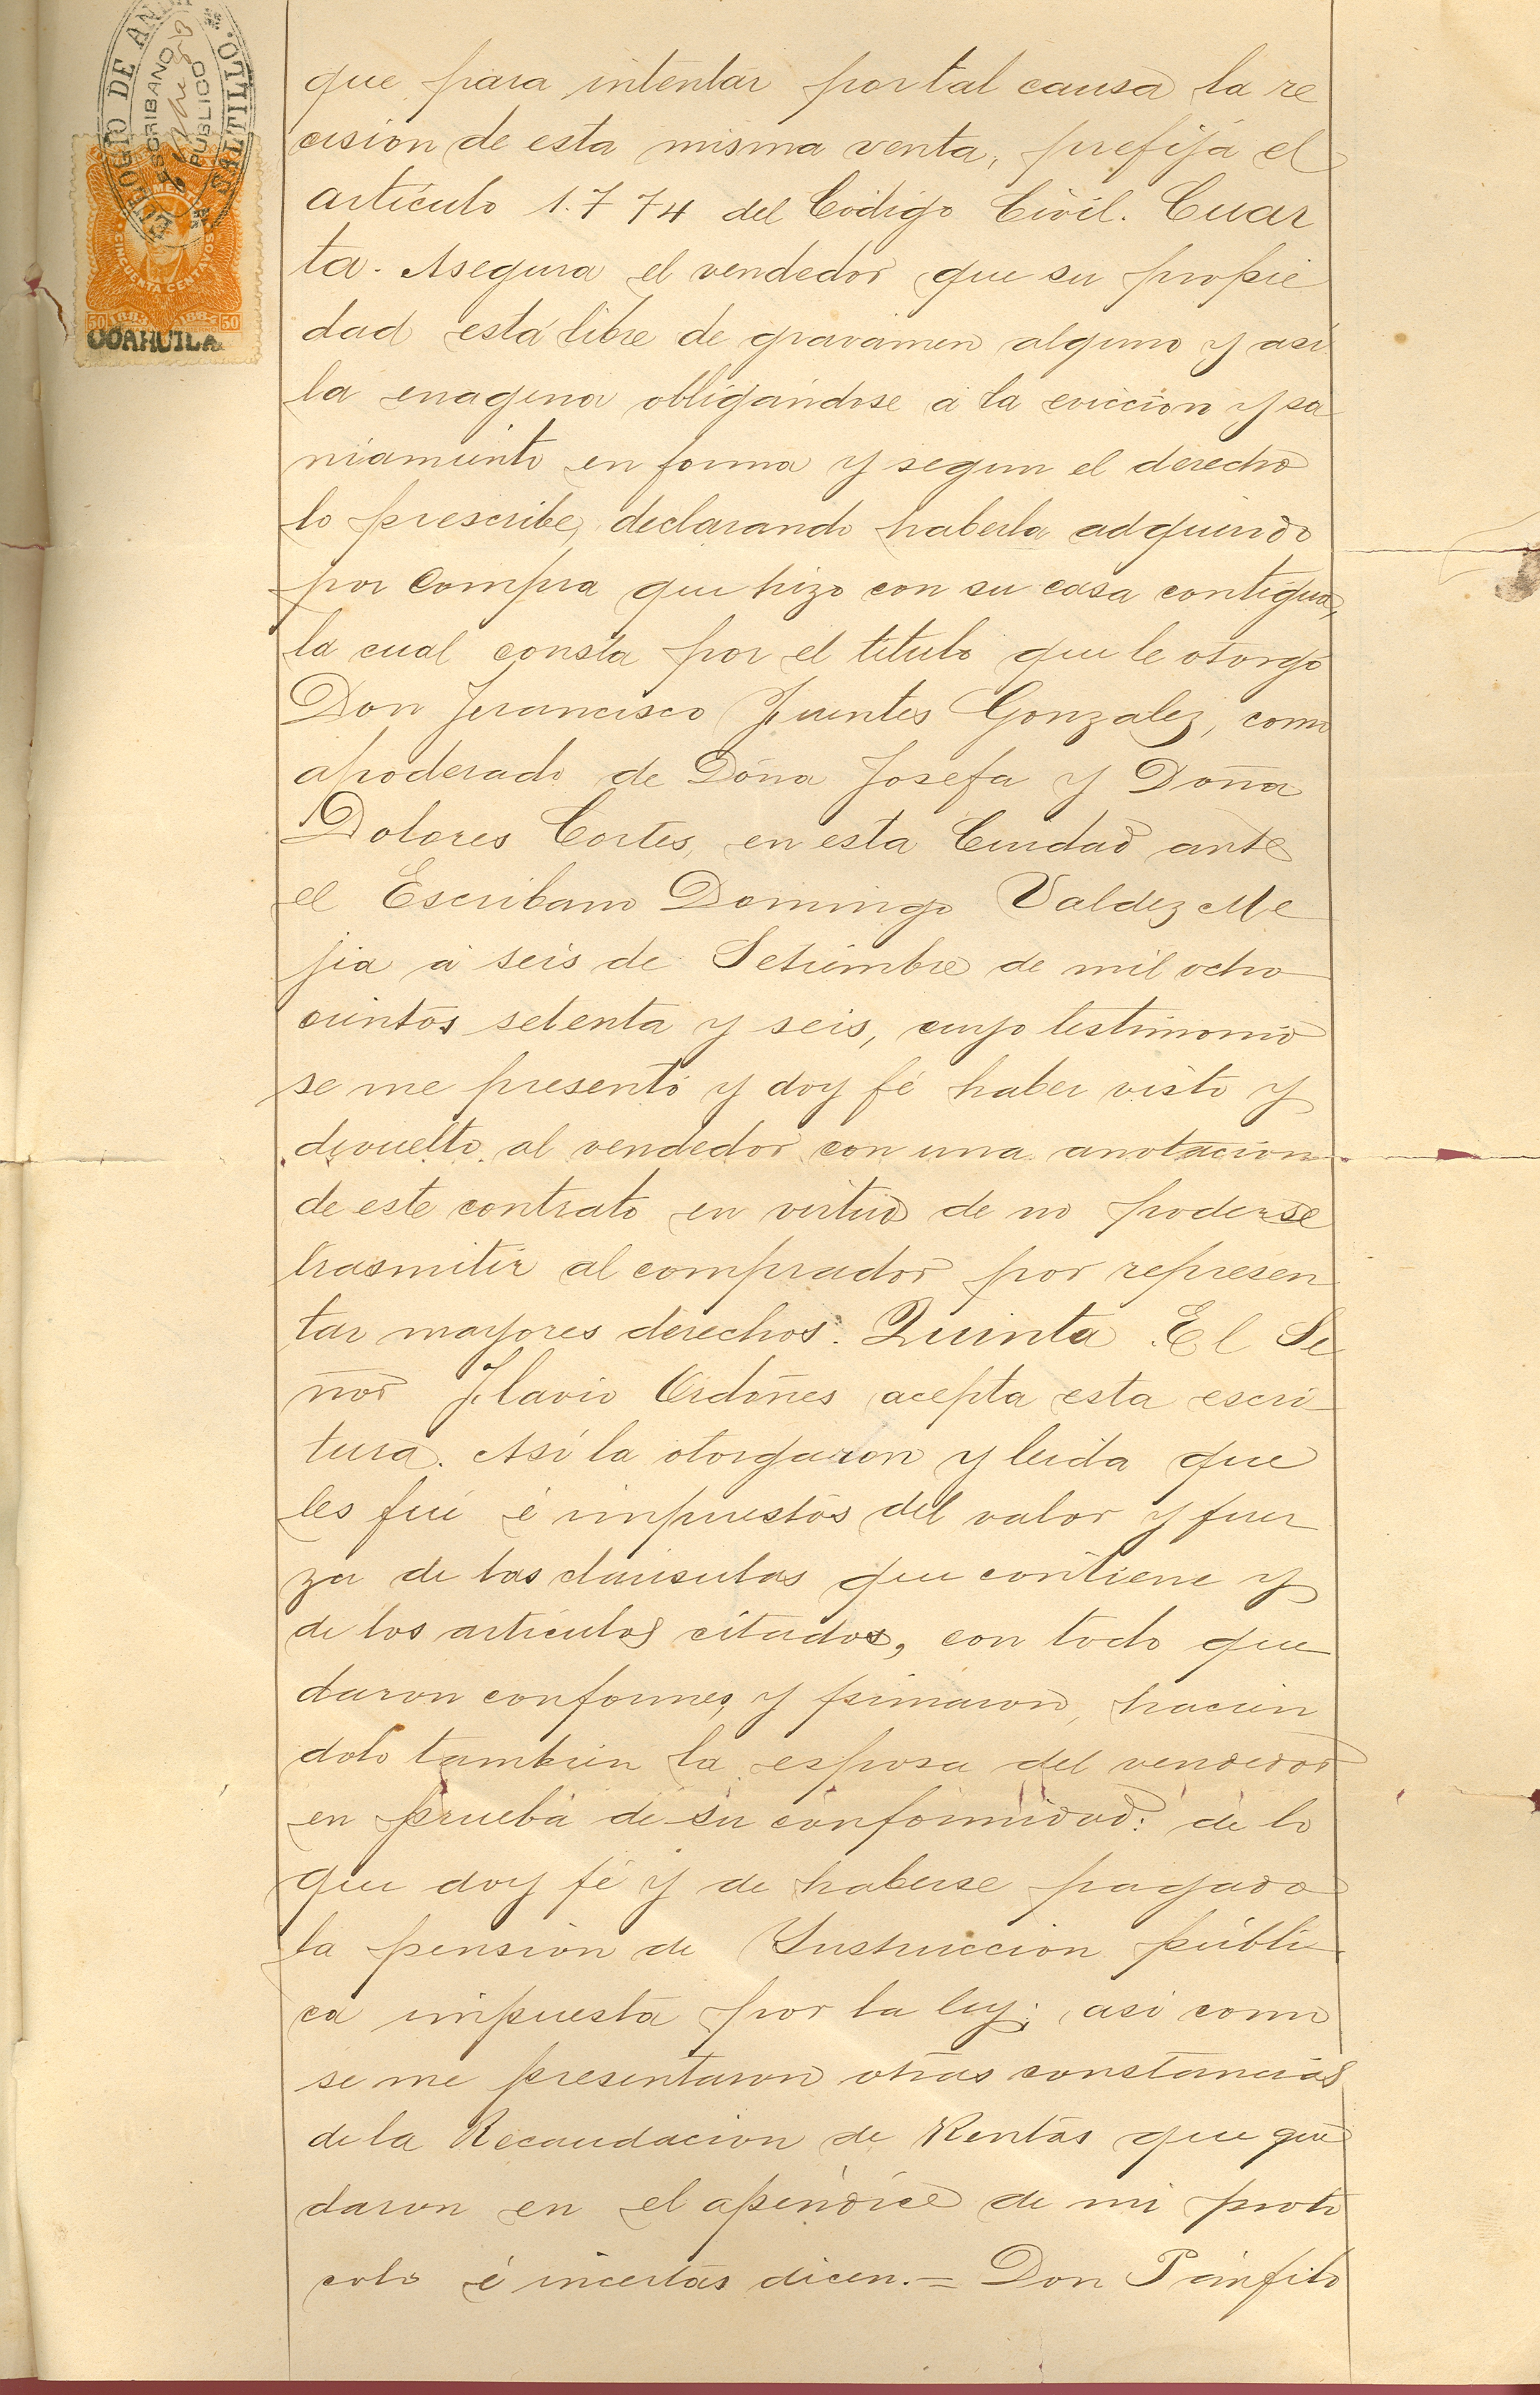 OGIO DE ANDA
SALTILLO.
ESCRIBANO
PUBLICO
CINCUENTA CENTAVOS
50 1884 1885 50
COAHUILA
que para intentar por tal causa la re
cision de esta misma venta, prefija el
artículo 1.774 del Código Civil. Cuar
ta. Asegura el vendedor que su propie
dad está libre de gravámen alguno y asi
la enagena obligándose á la eviccion y sa
niamiento en forma y segun el derecho
lo prescribe, declarando haberla adquirido
por compra que hizo con su casa contigua,
la cual consta por el título que le otorgó
Don Francisco Fuentes Gonzalez, como
apoderado de Doña Josefa y Doña
Dolores Cortes, en esta Ciudad ante
el Escribano Domingo Valdez Me
jia á seis de Setiembre de mil ocho
cientos setenta y seis, cuyo testimonio
se me presentó y doy fé haber visto y
devuelto al vendedor con una anotacion
de este contrato en virtud de no poderse
trasmitir al comprador por represen
tar mayores derechos. Quinta. El Se
ñor Flavio Ordoñes acepta esta escri
tura. Así la otorgaron y leida que
les fué é impuestos del valor y fuer
za de las cláusulas que contiene y
de los artículos citados, con todo que
daron conformes, y firmaron, hacien
dolo tambien la esposa del vendedor
en prueba de su conformidad: de lo
que doy fé y de haberse pagado
la pension de Instruccion públi
ca impuesta por la ley; asi como
se me presentaron otras constancias
de la Recaudacion de Rentas que que
daron en el apéndice de mi proto
colo é incertas dicen.= Don Pánfilo